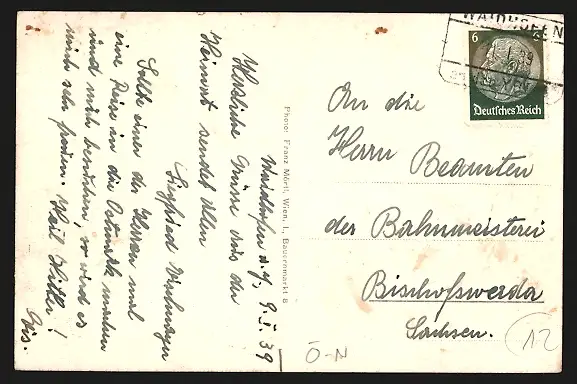 Waidhofen a. Y., 9. I. 39
Herzliche Grüsse aus der
Heimat sendet Allen
Siegfried
Sollte einer der Herren mal
eine Reise in die Ostmark machen
und mich besuchen, so wird es
mich sehr freuen. Heil Hitler!
Photo: Franz Mörtl, Wien, I., Bauernmarkt 8
WAIDHOFEN
39
6 6
Deutsches Reich
An die
Herrn Beamten
der Bahnmeisterei
Bischofswerda
Sachsen.
12
Ö-N